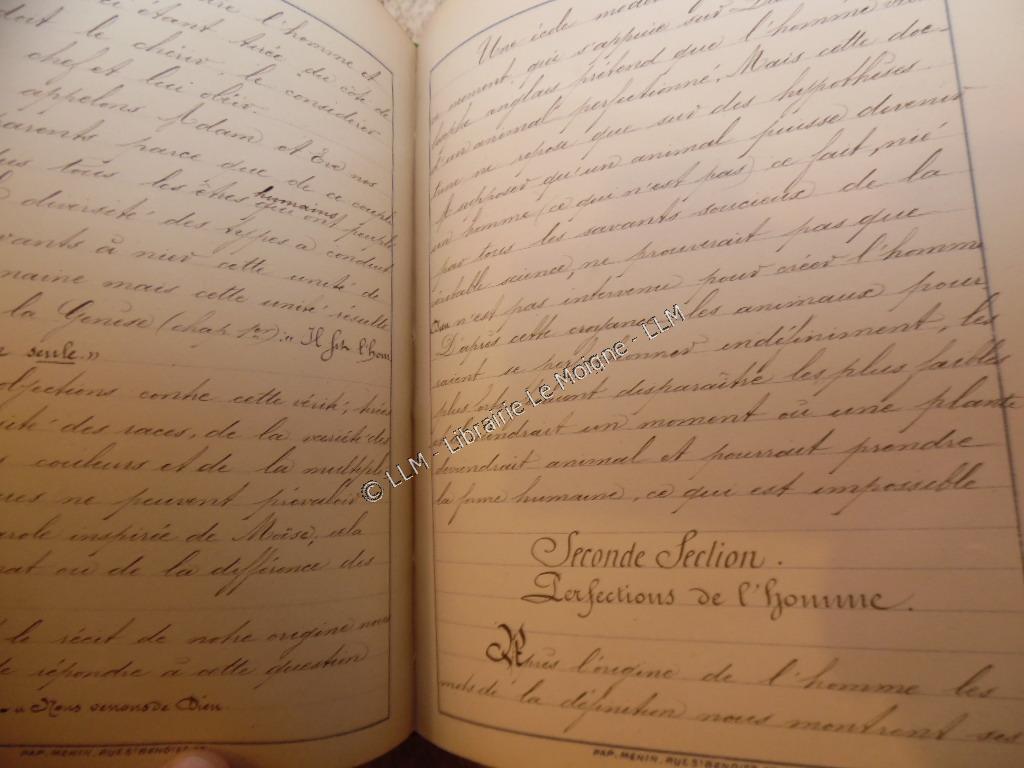 l'homme et
étant tirée du côté de
doit le chérir, le considérer
chef et lui obéir.
appelons Adam et Ève nos
parents parce que de ce couple
tous les êtres humains qui ont peuplé
diversité des types a conduit
savants à nier cette unité de
humaine mais cette unité résulte
la Genèse (chap. « Il fit l'hom
seule. »
objections contre cette vérité, tirées
des races, de la variété des
couleurs et de la multipli
ne peuvent prévaloir
parole inspirée de Moïse, à la
ou de la différence des
le récit de notre origine nous
répondre à cette question
« Nous venons de Dieu
PAP. MENIN. RUE ST BENOIST
Une école
moment, qui s'appuie sur
anglais prétend que l'homme
d'un animal perfectionné. Mais cette doc-
trine ne repose que sur des hypothèses.
A supposer qu'un animal puisse devenir
un homme (ce qui n'est pas) ce fait, nié
par tous les savants soucieux de la
véritable science, ne prouverait pas que
Dieu n'est pas intervenu pour créer l'homme
D'après cette croyance, les animaux pour-
raient se perfectionner indéfiniment, les
plus disparaître les plus faibles
et viendrait un moment où une plante
deviendrait animal et pourrait prendre
la forme humaine, ce qui est impossible
Seconde Section.
Perfections de l'homme.
Après l'origine de l'homme les
mots de la définition nous montrent ses
PAP. MENIN. RUE ST BENOIST
© LLM - Librairie Le Moigne - LLM